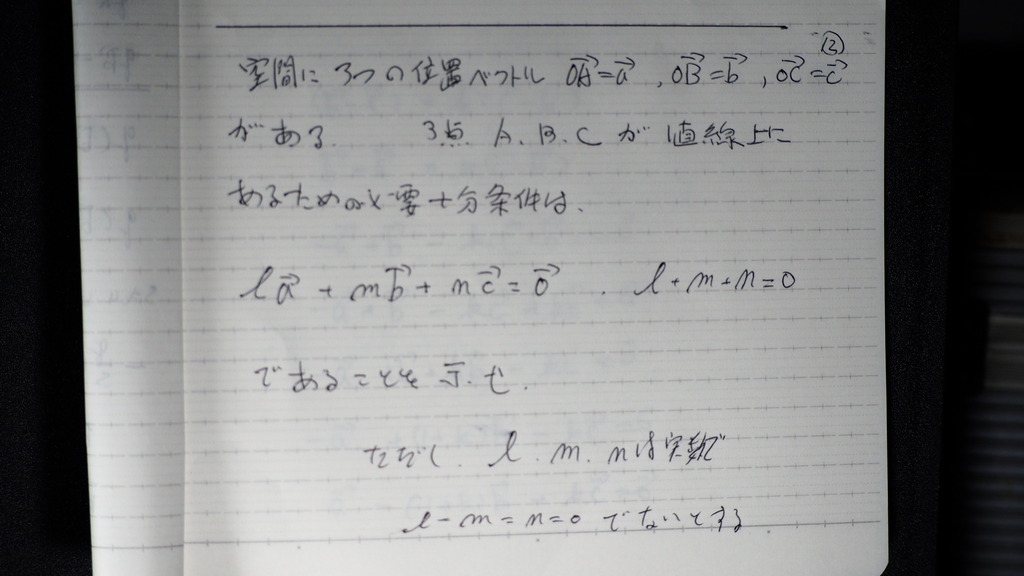 ②
空間に3つの位置ベクトル OA⃗=a⃗, OB⃗=b⃗, OC⃗=c⃗
がある 3点 A.B.C が 値線上に
あるための必要十分条件は.
la⃗+mb⃗+nc⃗=0⃗. l+m+n=0
であることを示せ.
ただし. l.m.nは実数で
l-m=n=0 でないとする